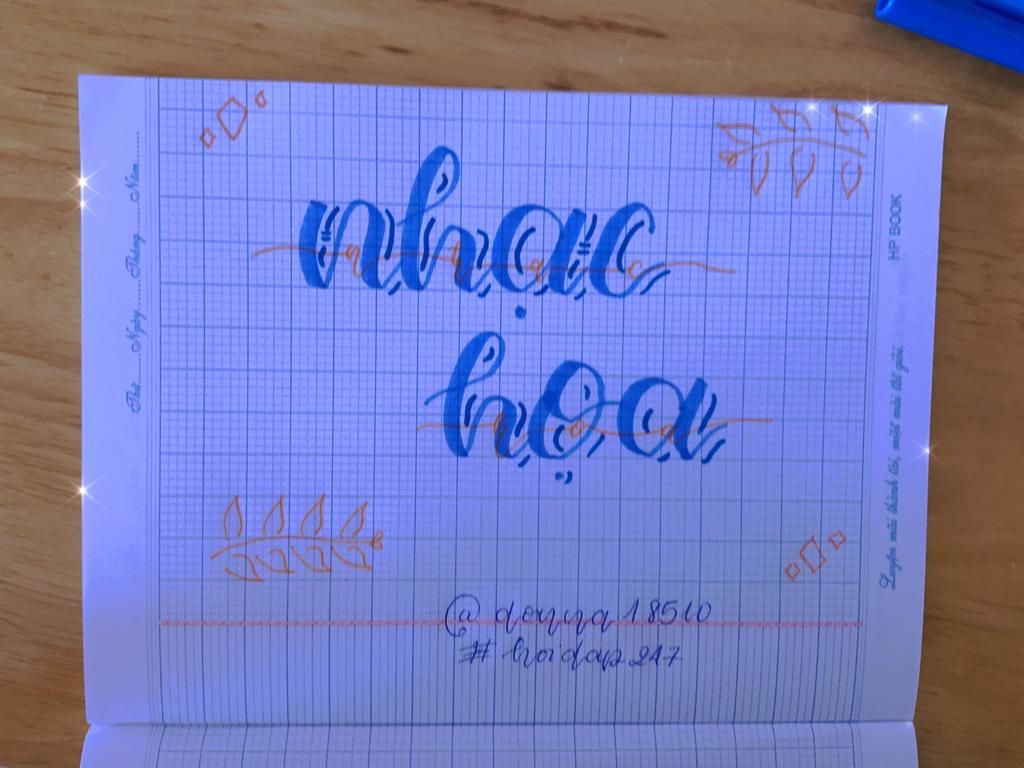 Thứ......Ngày......Tháng......Năm......
nhạc
họa
HP BOOK
Luyện mãi thành tài, miệt mài tất giỏi.
# hoidap247